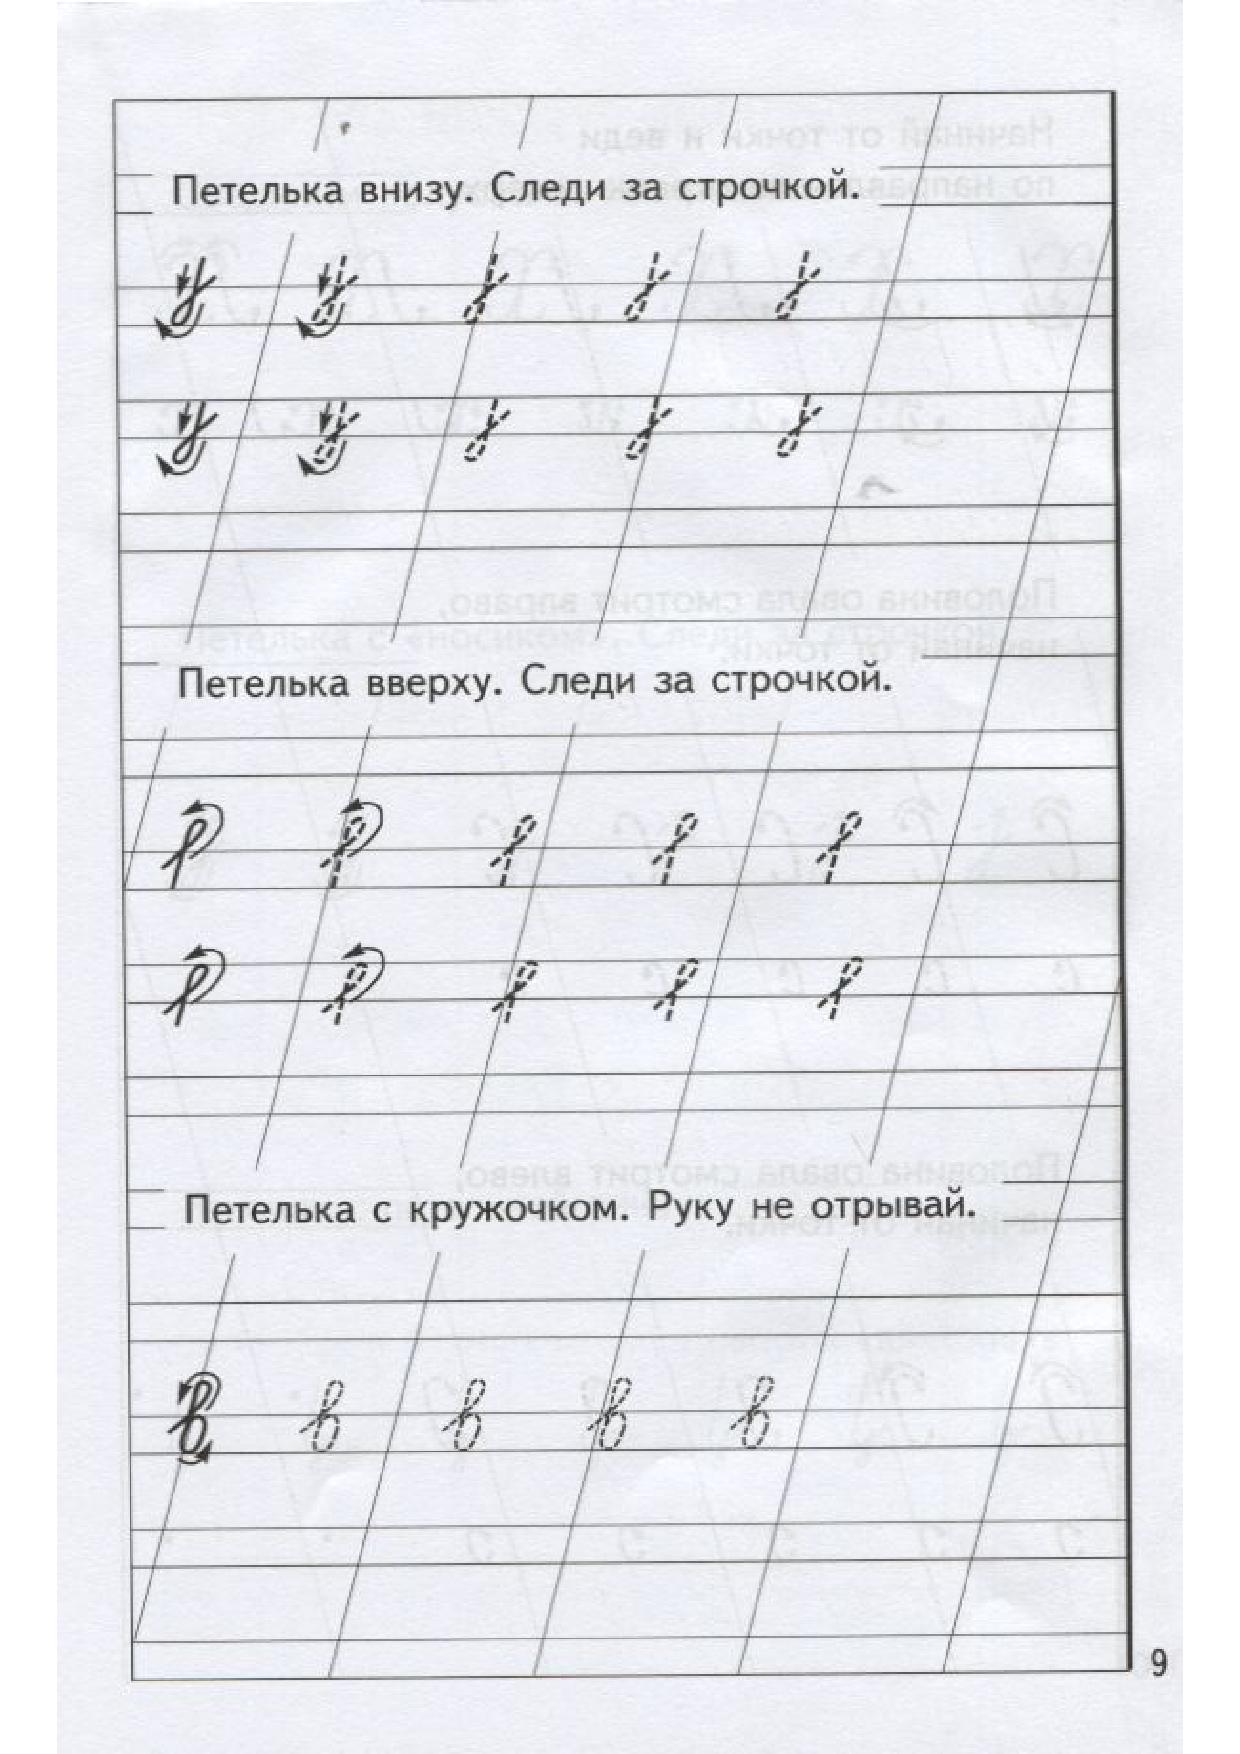 Петелька внизу. Следи за строчкой.
Петелька вверху. Следи за строчкой.
Петелька с кружочком. Руку не отрывай.
9